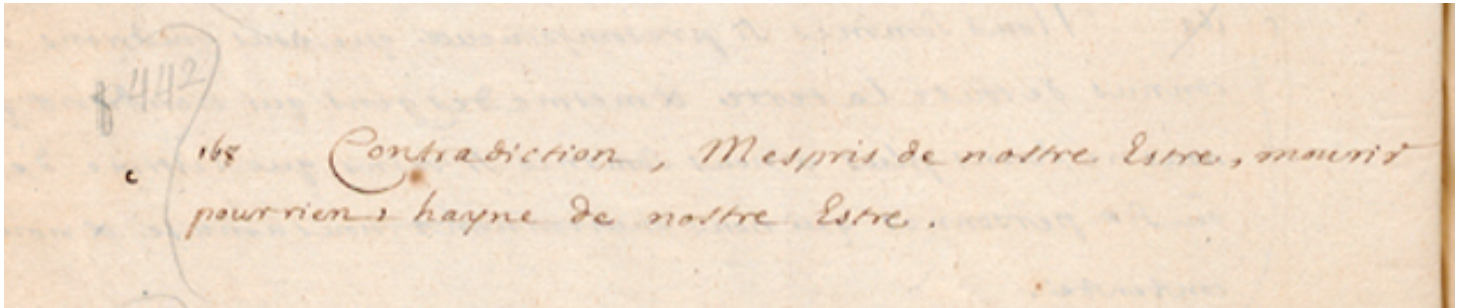 f 442
168 Contradiction, Mespris de nostre Estre, mourir
c
pour rien, hayne de nostre Estre.